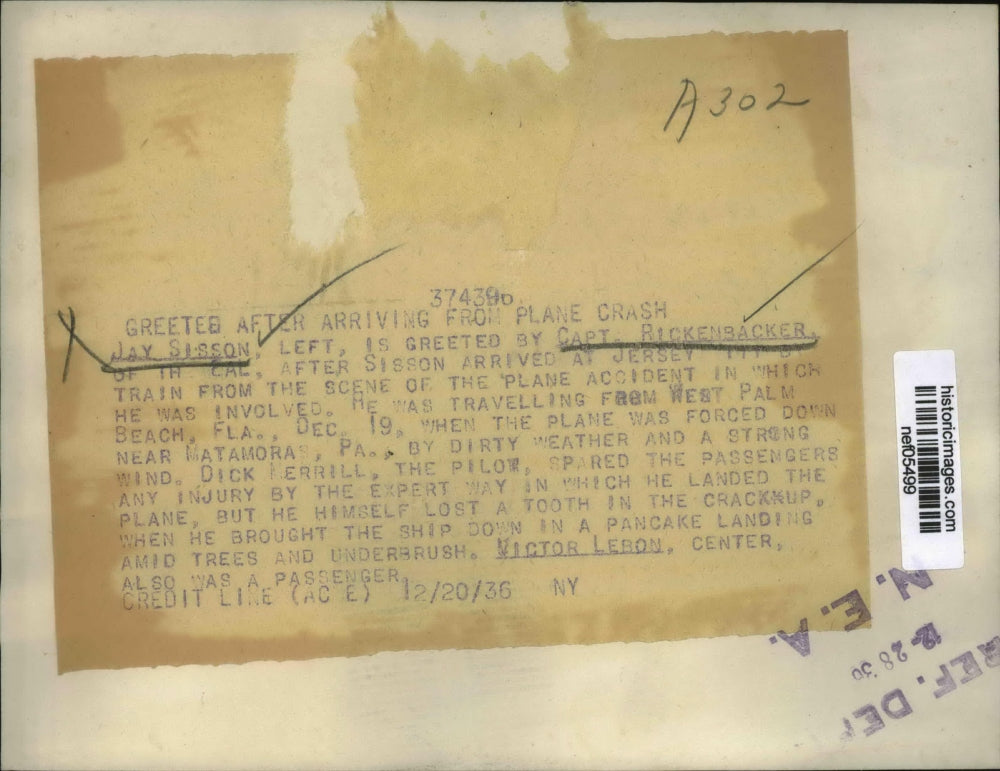 A302
374396
GREETED AFTER ARRIVING FROM PLANE CRASH
JAY SISSON, LEFT, IS GREETED BY CAPT. RICKENBACKER,
AFTER SISSON ARRIVED AT JERSEY
TRAIN FROM THE SCENE OF THE PLANE ACCIDENT IN WHICH
HE WAS INVOLVED. HE WAS TRAVELLING FROM WEST PALM
BEACH, FLA., DEC. 19, WHEN THE PLANE WAS FORCED DOWN
NEAR MATAMORAS, PA., BY DIRTY WEATHER AND A STRONG
WIND. DICK MERRILL, THE PILOT, SPARED THE PASSENGERS
ANY INJURY BY THE EXPERT WAY IN WHICH HE LANDED THE
PLANE, BUT HE HIMSELF LOST A TOOTH IN THE CRACK-UP,
WHEN HE BROUGHT THE SHIP DOWN IN A PANCAKE LANDING
AMID TREES AND UNDERBRUSH. VICTOR LEBON, CENTER,
ALSO WAS A PASSENGER.
CREDIT LINE (ACME) 12/20/36 NY
historicimages.com
nef05499
N.E.A.
REF. DEP